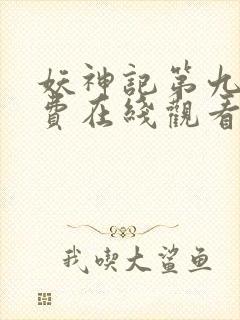 妖神記第九
費在綫觀看
我喫大鯊鱼